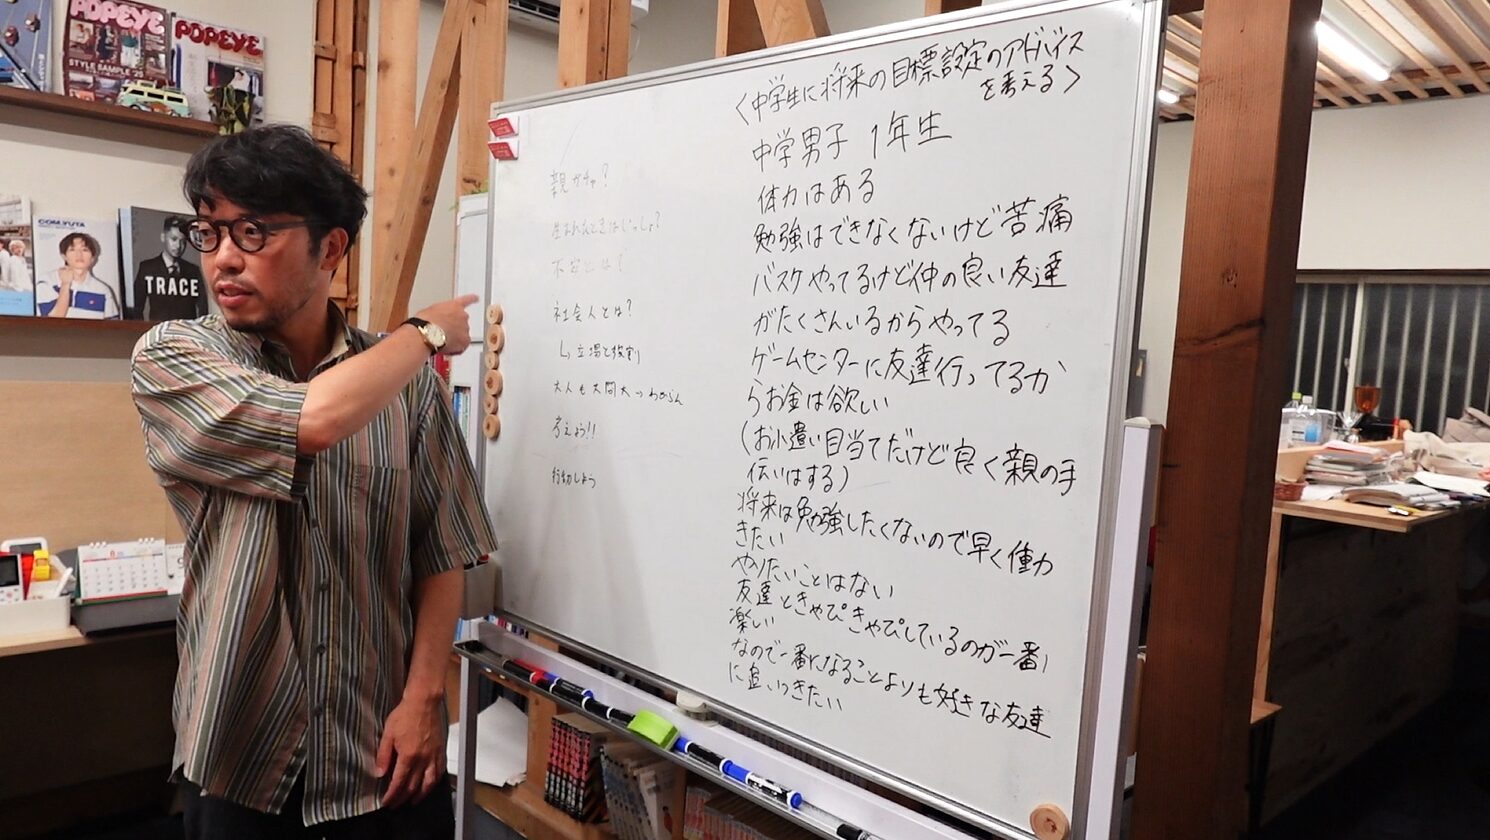 POPEYE
STYLE SAMPLE '20
POPEYE
COM.YUTA
TRACE
親ガチャ?
不安とは?
社会人とは?
↳立場と役割
大人も大問大→わからん
考えよう!!
行動しよう
〈中学生に将来の目標設定のアドバイス
を考える〉
中学男子 1年生
体力はある
勉強はできなくないけど苦痛
バスケやってるけど仲の良い友達
がたくさんいるからやってる
ゲームセンターに友達行ってるか
らお金は欲しい
(お小遣い目当てだけど良く親の手
伝いはする)
将来は勉強したくないので早く働
きたい
やりたいことはない
友達ときゃぴきゃぴしているのが一番
楽しい
なので一番になることよりも好きな友達
に追いつきたい